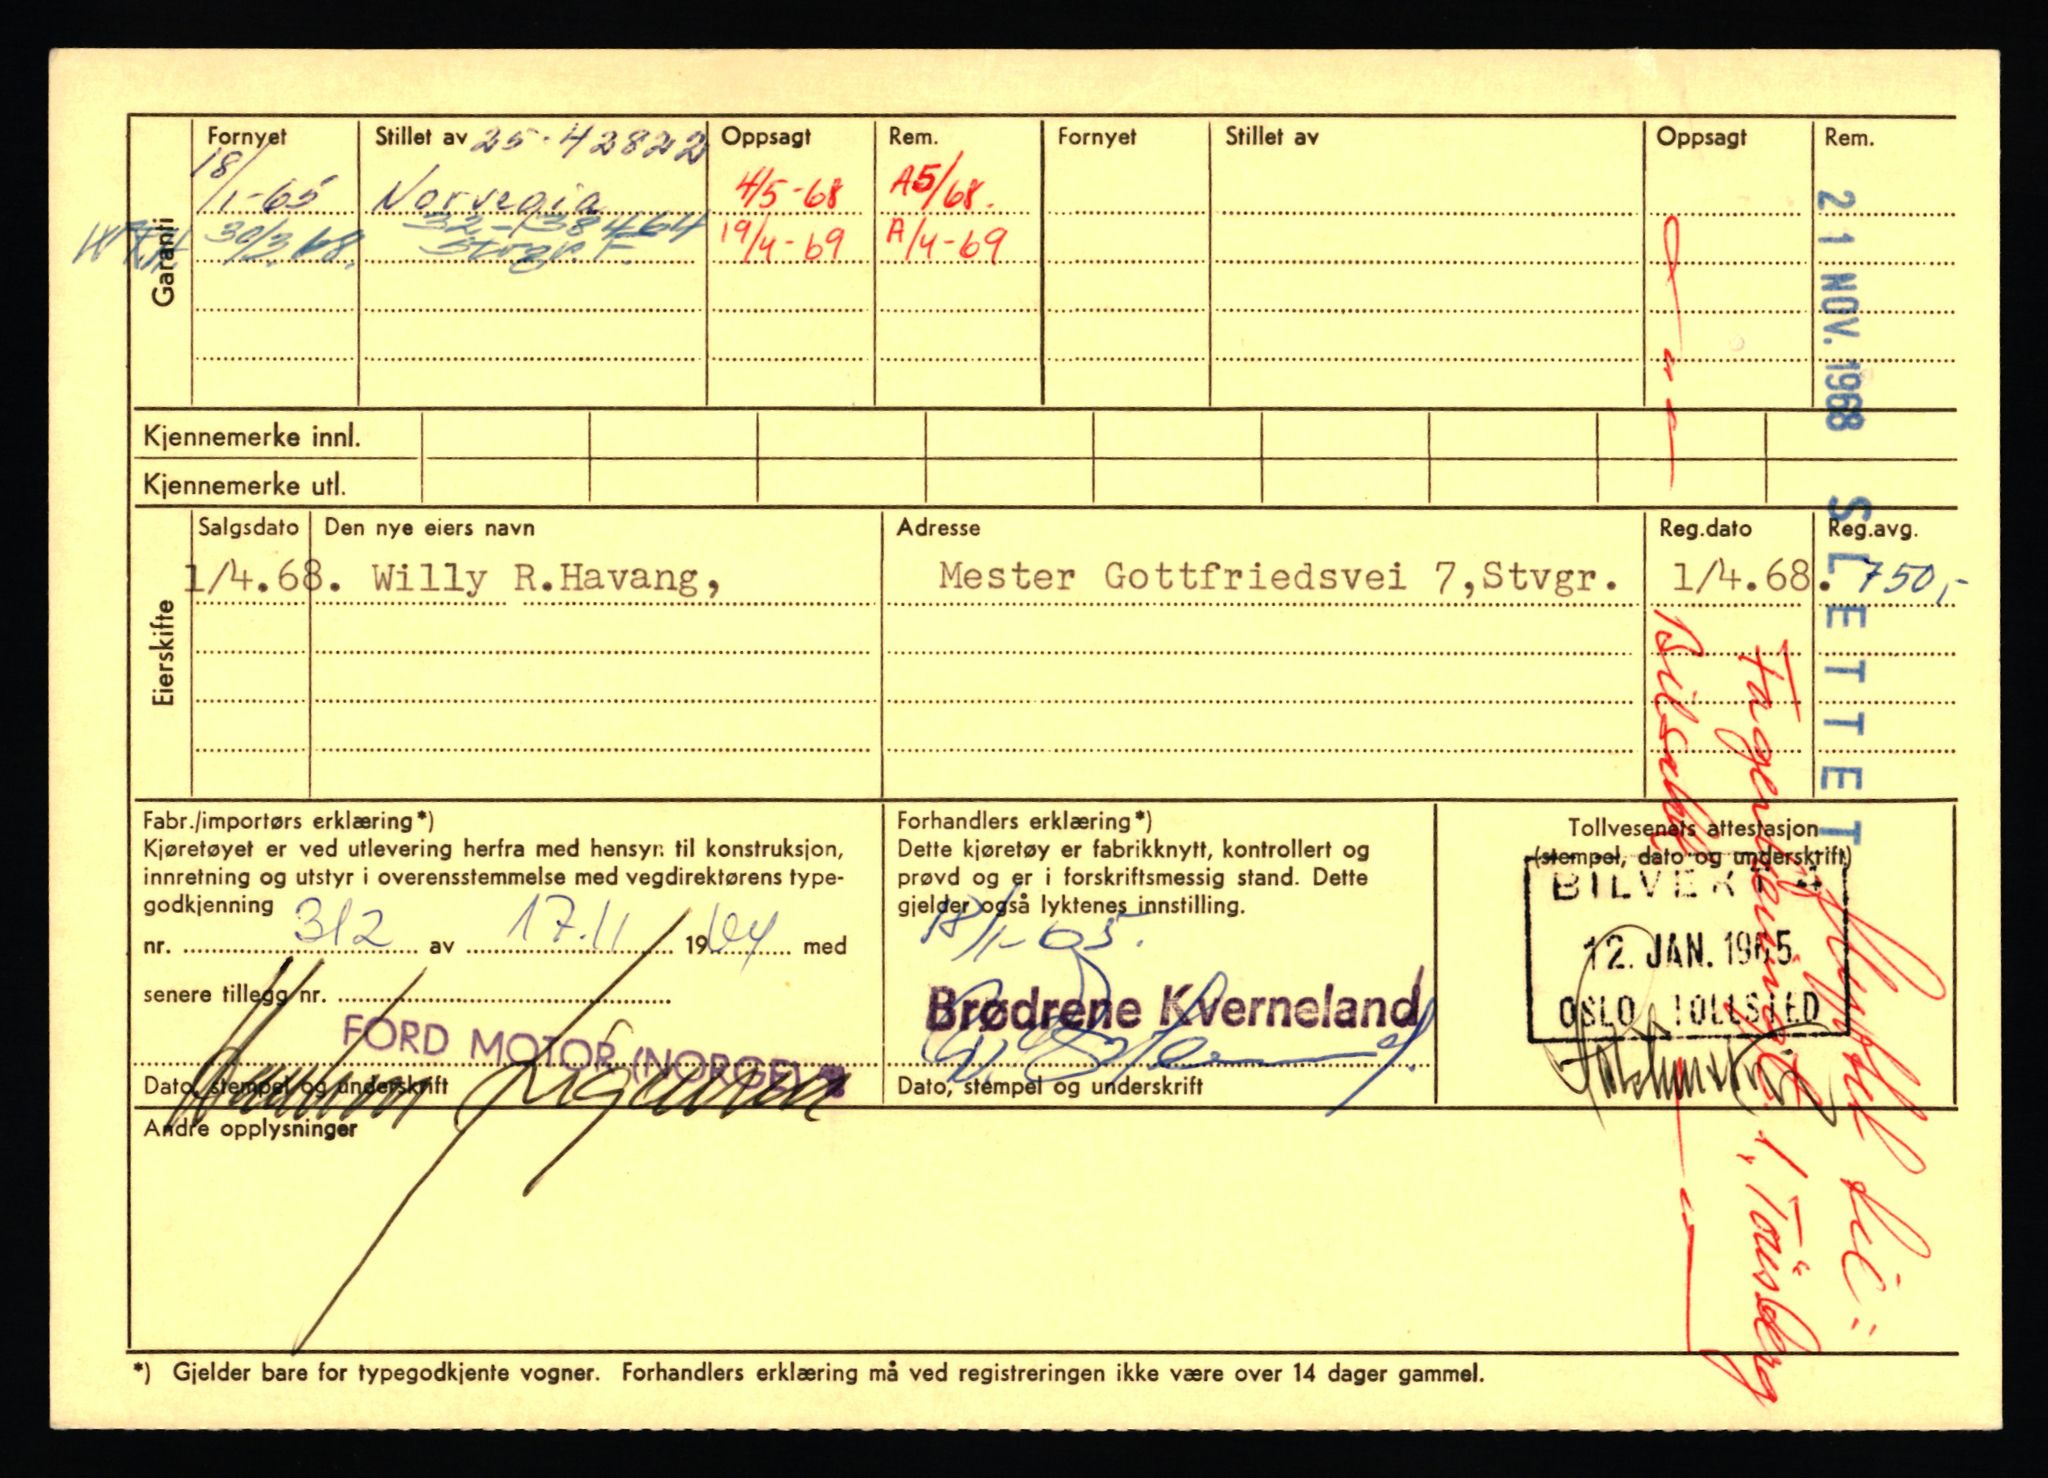 Garanti
Fornyet Stillet av 25-42822 Oppsagt Rem. Fornyet Stillet av Oppsagt Rem.
18/1-65 Norvegia 4/5-68 A5/68.
30/3.68. 32-138464 19/4-69 A/4-69
Stvgr. F.
Kjennemerke innl.
Kjennemerke utl.
Eierskifte
Salgsdato Den nye eiers navn Adresse Reg.dato Reg.avg.
1/4.68. Willy R.Havang, Mester Gottfriedsvei 7,Stvgr. 1/4.68. 750,-
21 NOV. 1968 SLETTET
Fabr./importørs erklæring*)
Kjøretøyet er ved utlevering herfra med hensyn til konstruksjon,
innretning og utstyr i overensstemmelse med vegdirektørens type-
godkjenning
nr. 312 av 17.11 1964 med
senere tillegg nr.
FORD MOTOR (NORGE)
Dato, stempel og underskrift
Forhandlers erklæring*)
Dette kjøretøy er fabrikknytt, kontrollert og
prøvd og er i forskriftsmessig stand. Dette
gjelder også lyktenes innstilling.
18/1-65.
Brødrene Kverneland
Dato, stempel og underskrift
Tollvesenets attestasjon
(stempel, dato og underskrift)
12. JAN. 1965
OSLO TOLLSTED
Andre opplysninger
flyttet til:
i Tønsberg
*) Gjelder bare for typegodkjente vogner. Forhandlers erklæring må ved registreringen ikke være over 14 dager gammel.